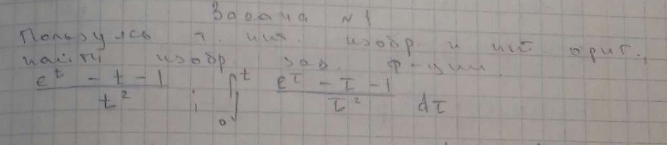 Задача №1
Пользуясь т. инт. изобр. и инт. ориг.,
найти изобр. зад. ф-ции
(e^t - t - 1)/t² ; ∫₀ᵗ (e^τ - τ - 1)/τ² dτ